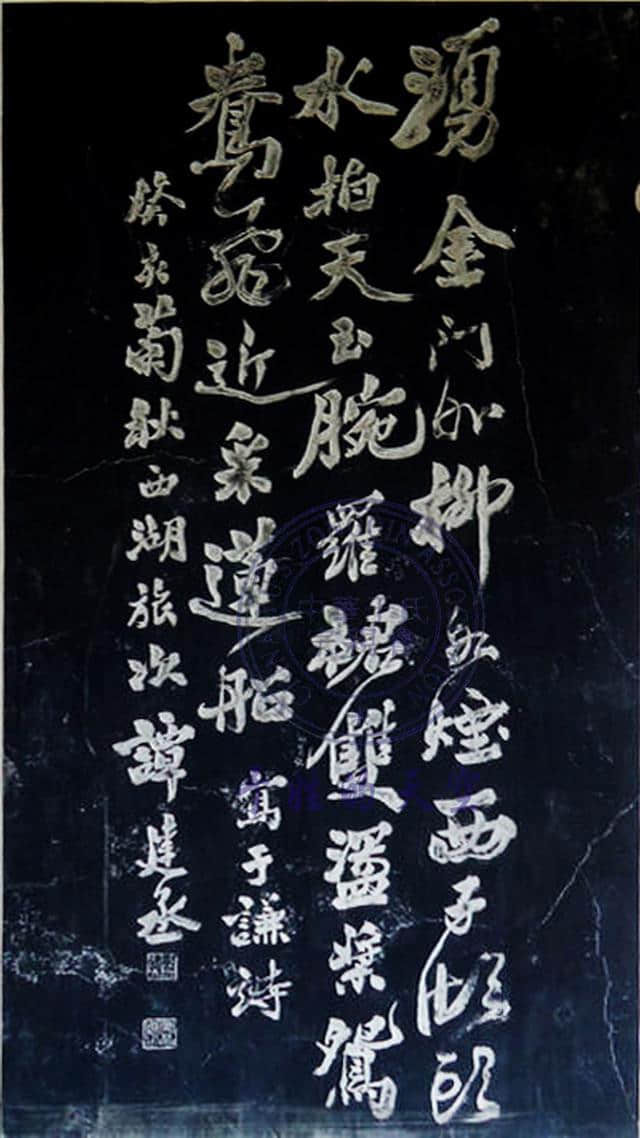 湧金门外柳如煙西子湖頭
水拍天玉腕羅裙雙盪槳鴛
鴦飛近采蓮船 寫于謙詩
癸亥蘭秋西湖旅次譚建丞